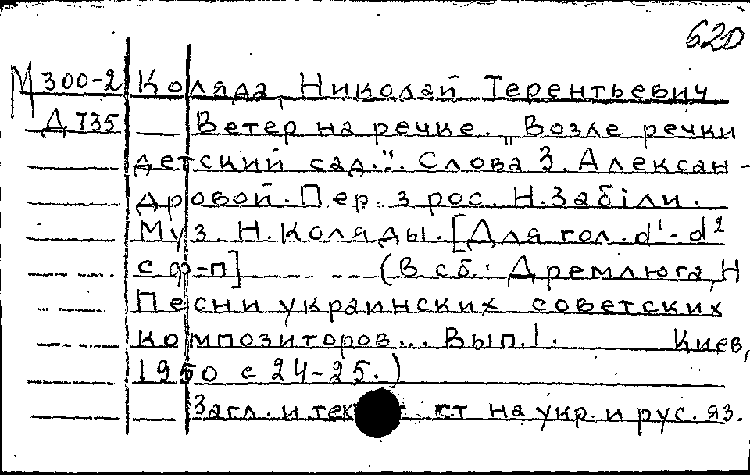 620
М 300-2 Коляда, Николай Терентьевич
Д 735 Ветер на речке. "Возле речки
детский сад.". Слова З. Алексан-
дровой. Пер. з рос. Н. Забіли.
Муз. Н. Коляды. [Для гол. d¹-d²
с ф-п] (В сб.: Дремлюга, Н
Песни украинских советских
композиторов... Вып. 1. Киев,
1950 с 24-25.)
Загл. и тек ст на укр. и рус. яз.